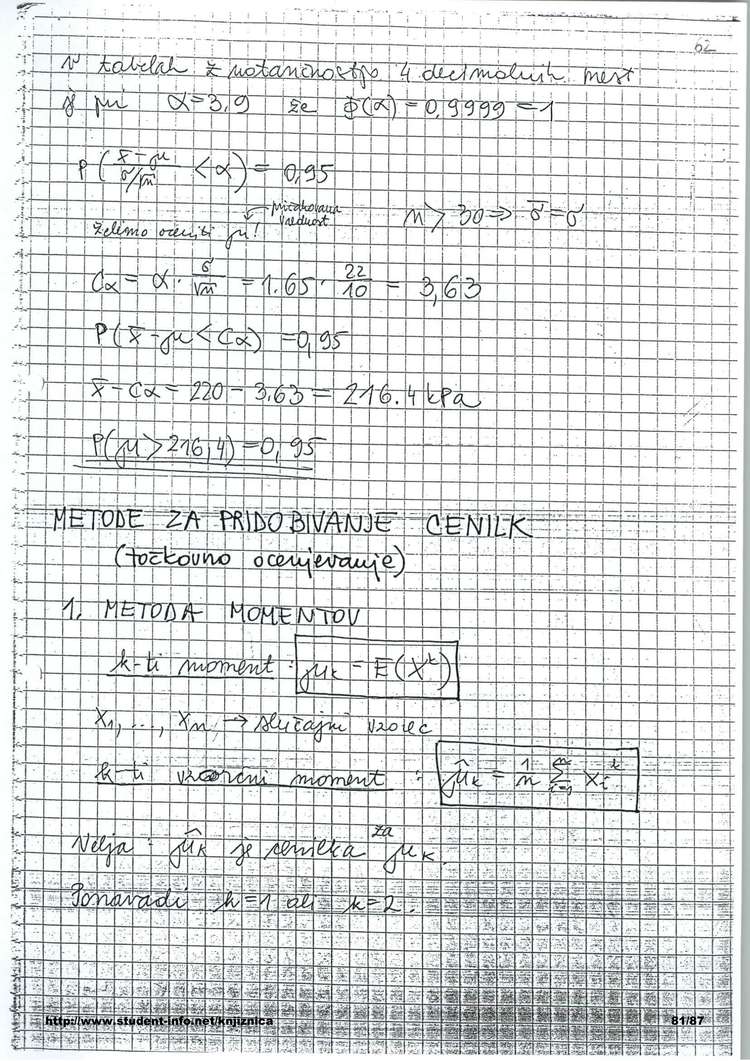 62
v tabelah z natančnostjo 4 decimalnih mest
je pri α=3,9 že Φ(α)=0,9999=1
P( (x̄-μ)/(σ/√n) < α) = 0,95
pričakovana vrednost
n > 30 ⇒ σ̄=σ
želimo oceniti μ!
Cα = α · σ/√n = 1.65 · 22/10 = 3,63
P(x̄-μ < Cα) = 0,95
x̄-Cα = 220 - 3,63 = 216.4 kPa
P(μ > 216,4) = 0,95
METODE ZA PRIDOBIVANJE CENILK
(točkovno ocenjevanje)
1. METODA MOMENTOV
k-ti moment : μk = E(X^k)
X1, ..., Xn, → slučajni vzorec
k-ti vzorčni moment : μ̂k = 1/n Σ i=1 n xi^k
Velja : μ̂k je cenilka za μk.
Ponavadi k=1 ali k=2.
http://www.student-info.net/knjiznica 81/87